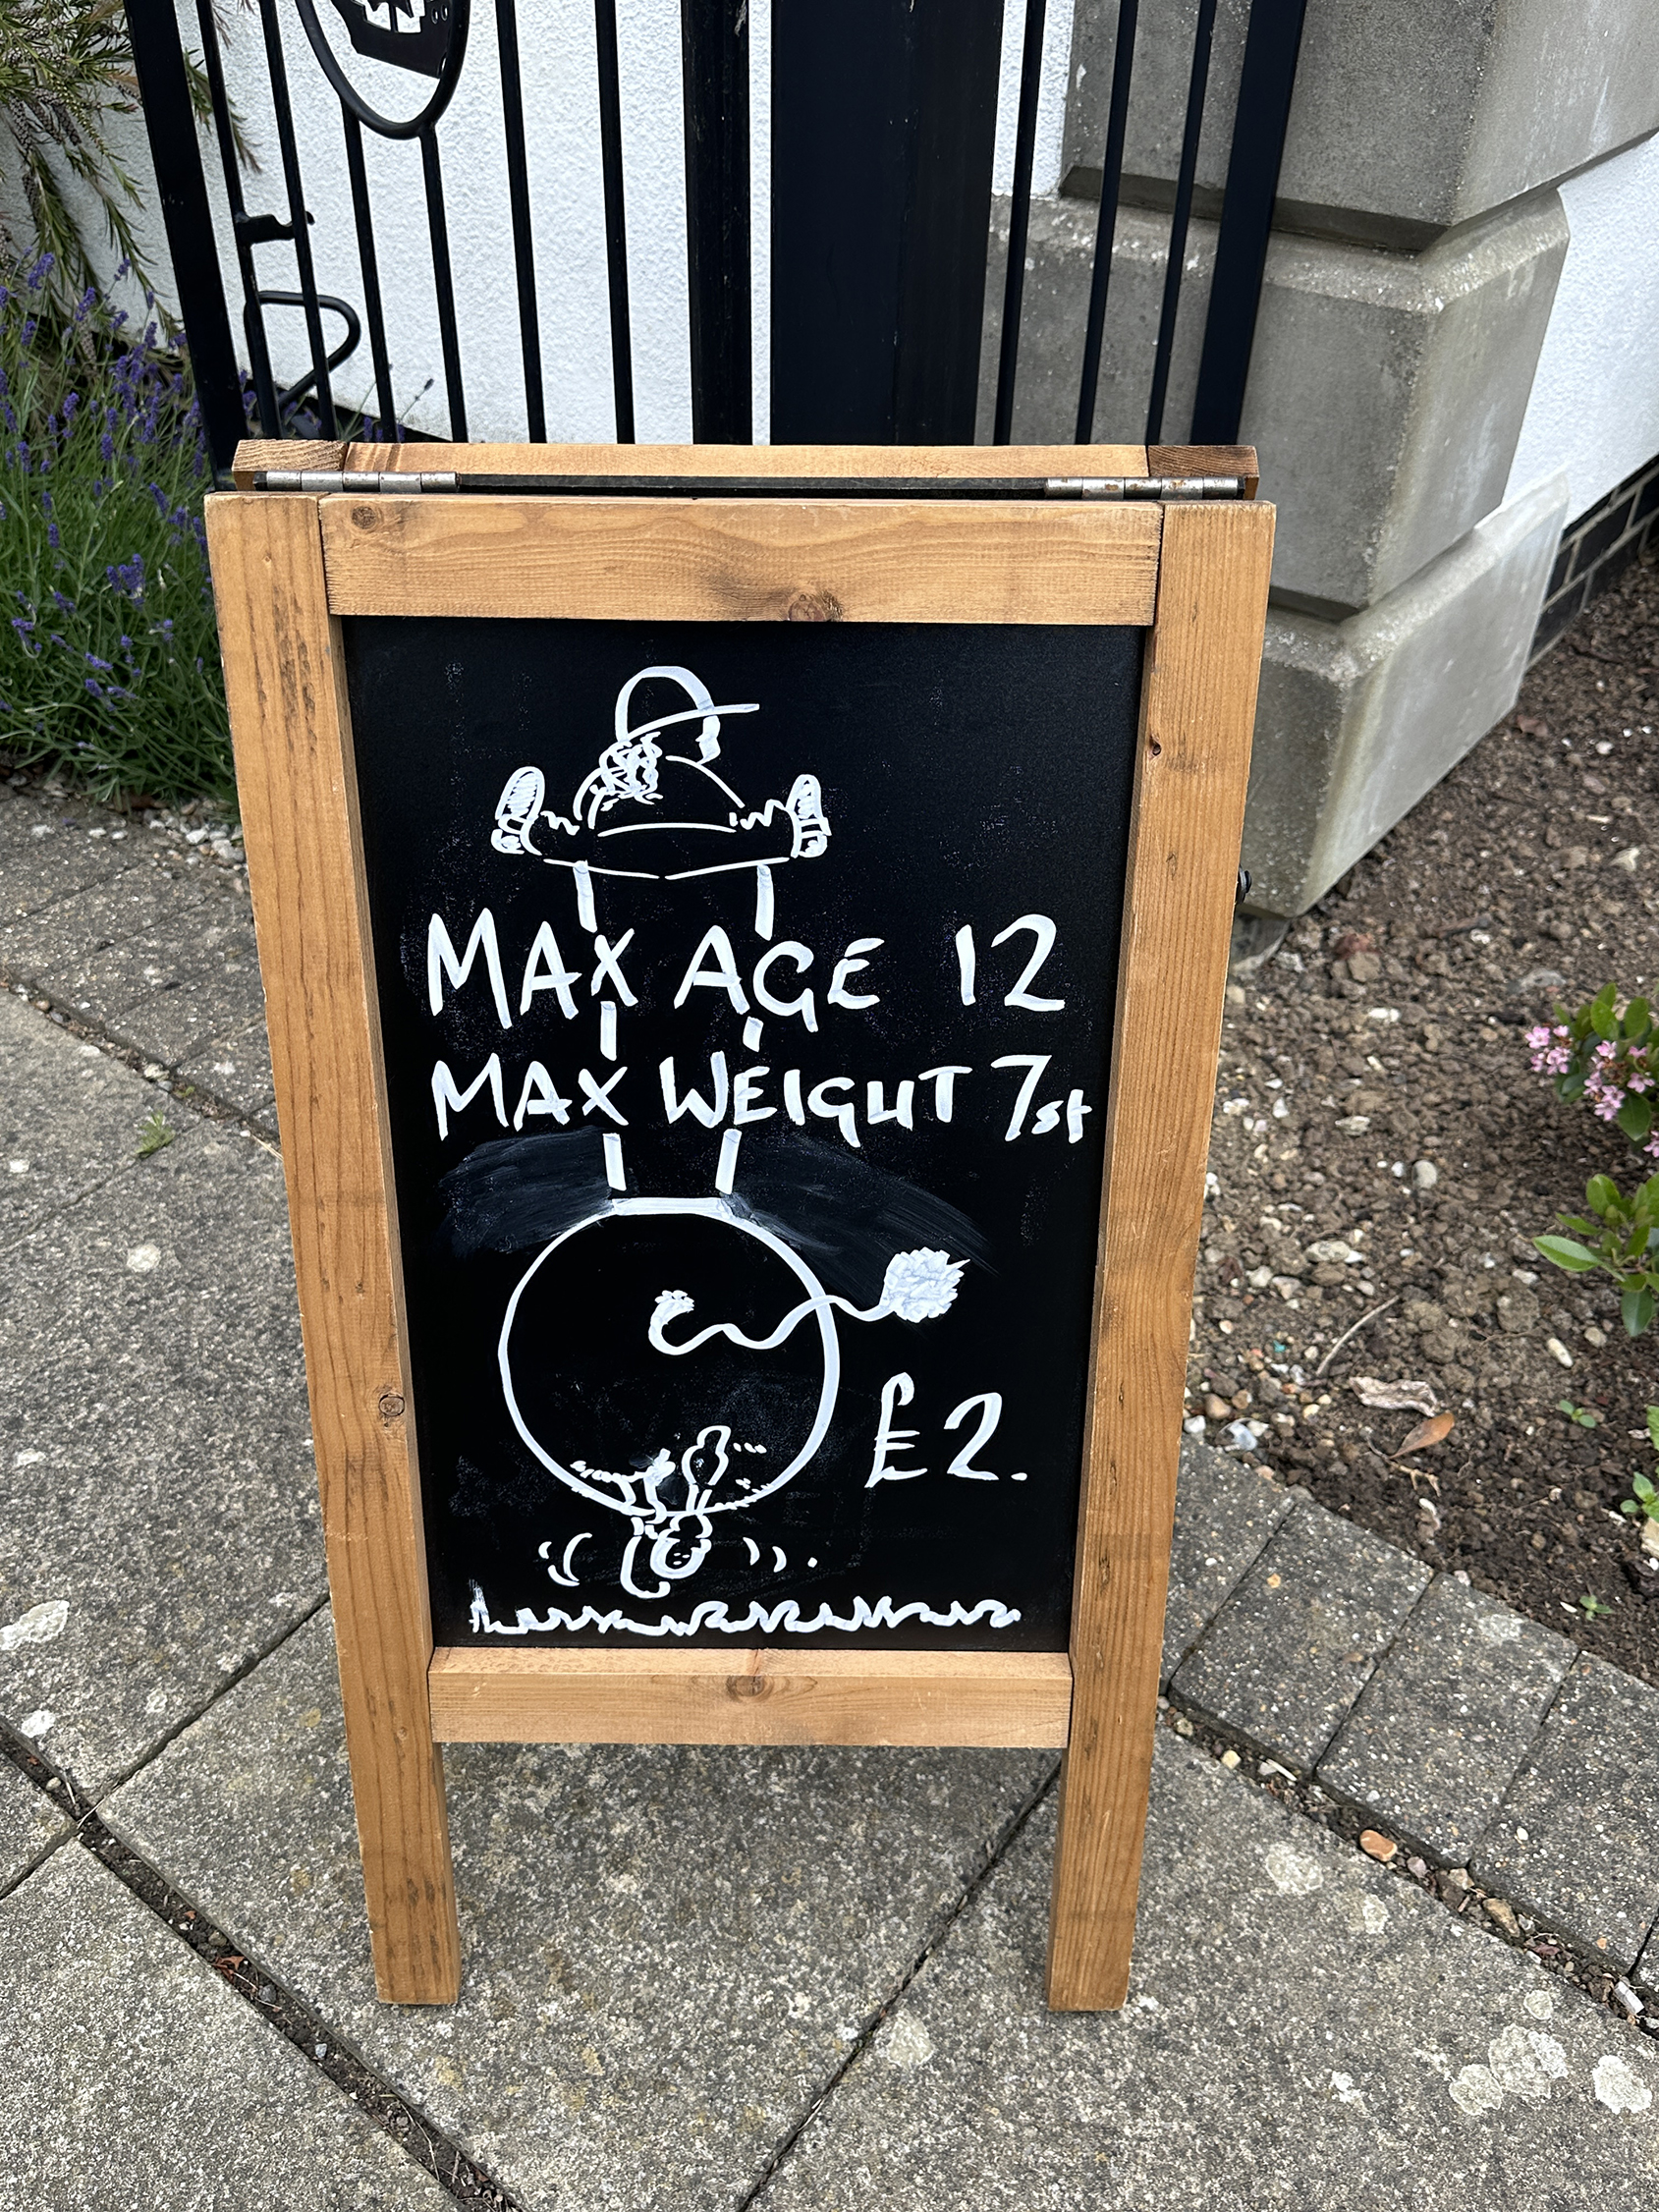 MAX AGE 12
MAX WEIGHT 7st
£2.